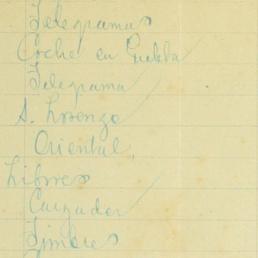 Telegramas
Coche en Puebla
Telegrama
S. Lorenzo
Oriental
Libres
Cargador
Timbres